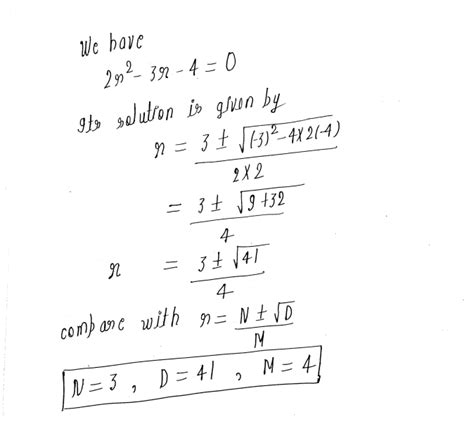 We have
2x² - 3x - 4 = 0
Its solution is given by
x = 3 ± √(-3)² - 4×2(-4) / 2×2
= 3 ± √9+32 / 4
x = 3 ± √41 / 4
compare with x = N ± √D / M
N = 3 , D = 41 , M = 4